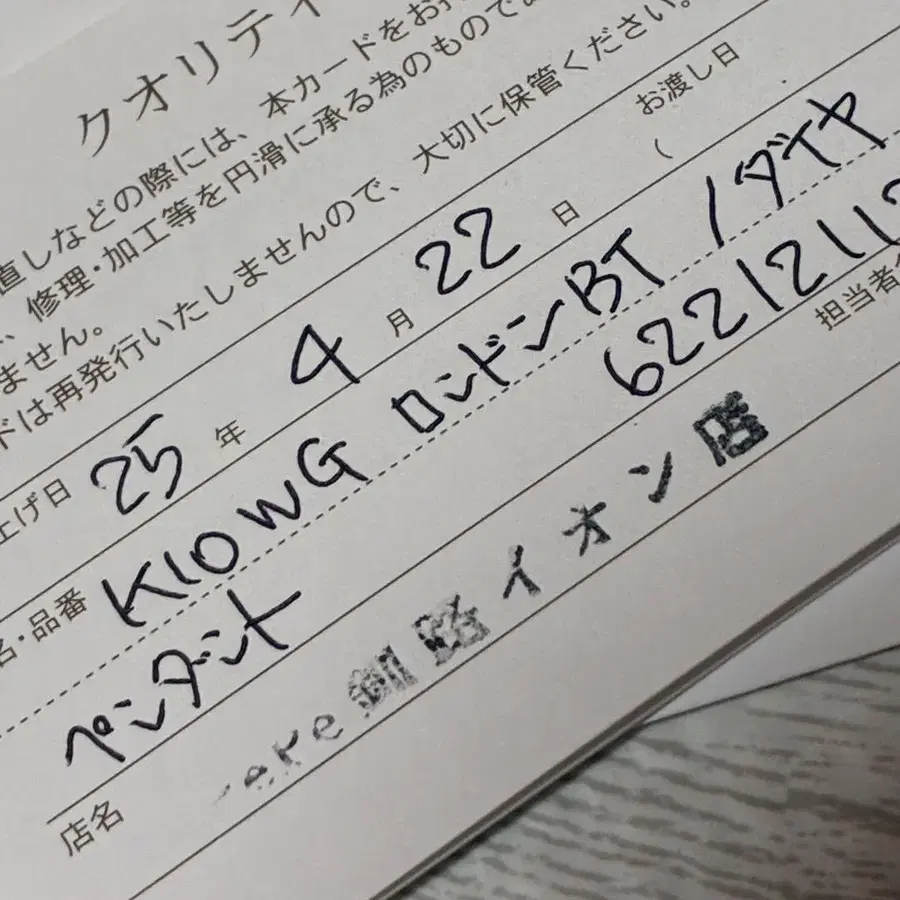 クオリティ
直しなどの際には、本カードをお
、修理・加工等を円滑に承る為のもので
ません。
ドは再発行いたしませんので、大切に保管ください。
上げ日 25 年 4 月 22 日 お渡し日 (
名・品番 K10WG ロンドンBT / ダイヤ
ペンダント 622121112
担当者
店名 釧路イオン店